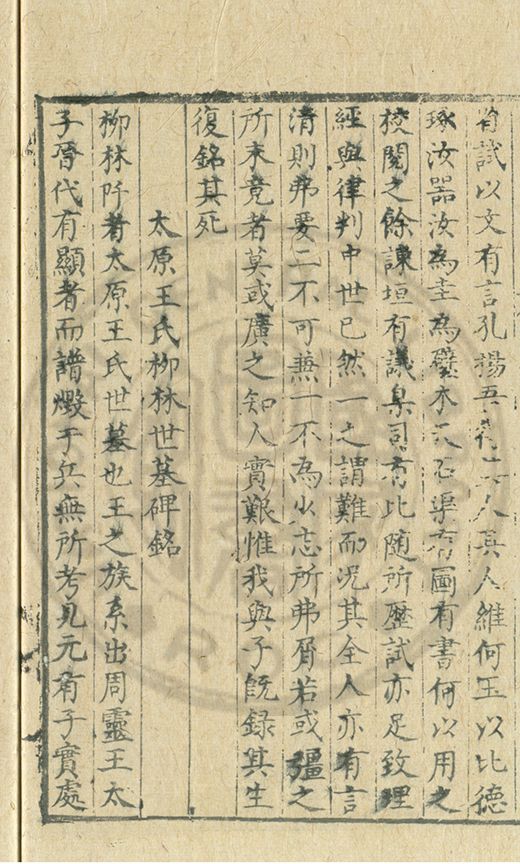 有試以文有言孔揚吾人其人維何玉以比德
琢汝器汝為圭為璧木天石渠有圖有書何以用之
校閱之餘諫垣有議臬司有比隨所歷試亦足致理
經與律判中世已然一之謂難而况其全人亦有言
清則弗要二不可兼一不為少志所弗屑若或彊之
所未竟者莫或廣之知人實艱惟我與子旣録其生
復銘其死
太原王氏柳林世墓碑銘
柳林阡者太原王氏世墓也王之族系出周靈王太
子晉代有顯者而譜燬于兵無所考見元有子實處